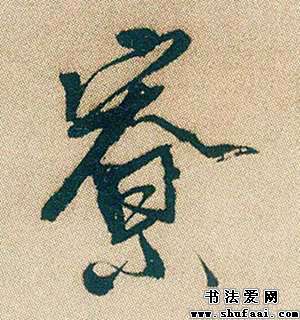 寮
书法爱网
www.shufaai.com